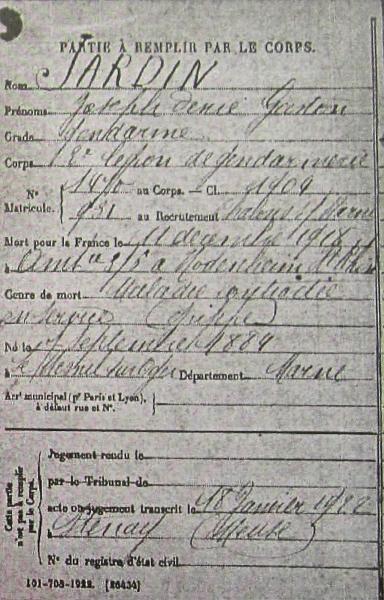 PARTIE À REMPLIR PAR LE CORPS.
Nom JARDIN
Prénoms Joseph Denis Gaston
Grade Gendarme
Corps Légion de Gendarmerie
N° au Corps. — Cl. 1904
Matricule. 951 au Recrutement Chalons s/ Marne
Mort pour la France le 11 décembre 1918
à Amb ce 3/5 à
Genre de mort Maladie contractée
en service (Grippe)
Né le 7 Septembre 1884
à Le Mesnil sur Oger Département Marne
Arr<sup>t</sup> municipal (p<sup>r</sup> Paris et Lyon),
à défaut rue et N°.
Cette partie
n'est pas à remplir
par le Corps.
Jugement rendu le
par le Tribunal de
acte ou jugement transcrit le 18 Janvier 1922
à Stenay (Meuse)
N° du registre d'état civil
101-708-1922. [26434]